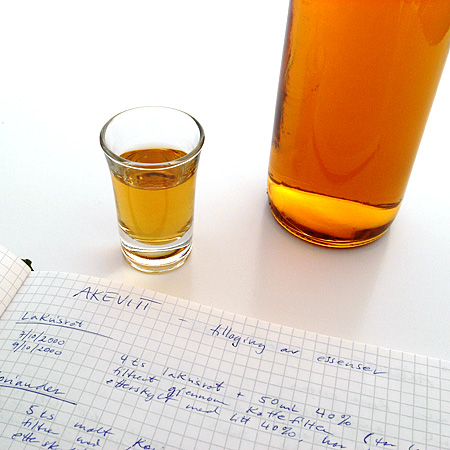 AKEVITT - tillaging av essenser
Lakrisrot
7/10/2000
9/10/2000
4 ts lakrisrot + 50ml 40%
filtrert gjennom kaffefilter
etterskylt med litt 40%,
oriander
5 ts malt
filtre